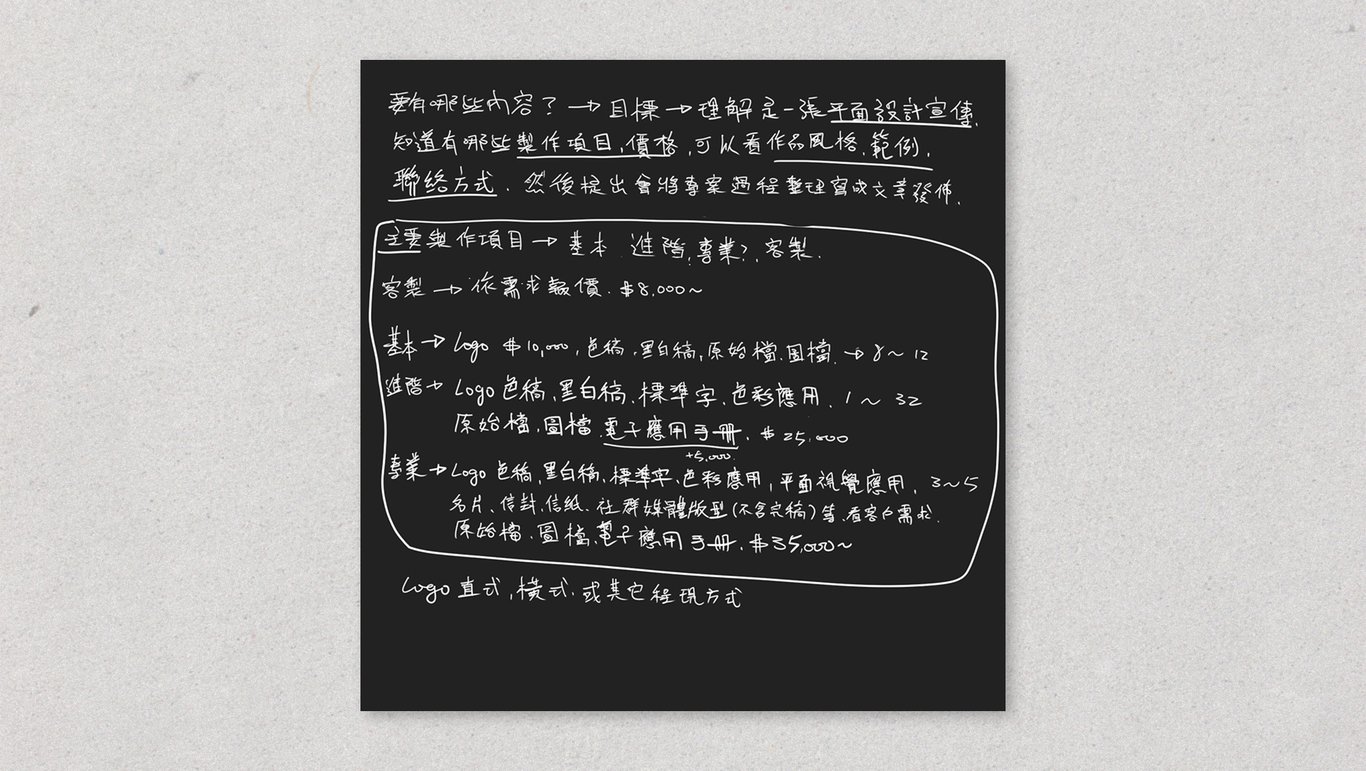 要有哪些內容？→目標→理解是一張平面設計宣傳.
知道有哪些製作項目,價格,可以看作品風格.範例,
聯絡方式.然後提出會將專案過程整理寫成文章發佈.
主要製作項目→基本 進階,專業?,客製.
客製→依需求報價.$8,000~
基本→Logo $10,000,色稿,黑白稿,原始檔.圖檔.→8~12
進階→Logo色稿,黑白稿,標準字.色彩應用.1~32
原始檔,圖檔.電子應用手冊.$25,000
+5,000.
專業→Logo色稿,黑白稿,標準字.色彩應用,平面視覺應用.3~5
名片、信封、信紙、社群媒體版型(不含完稿)等,看客戶需求.
原始檔.圖檔.電子應用手冊.$35,000~
Logo直式,橫式.或其它程現方式